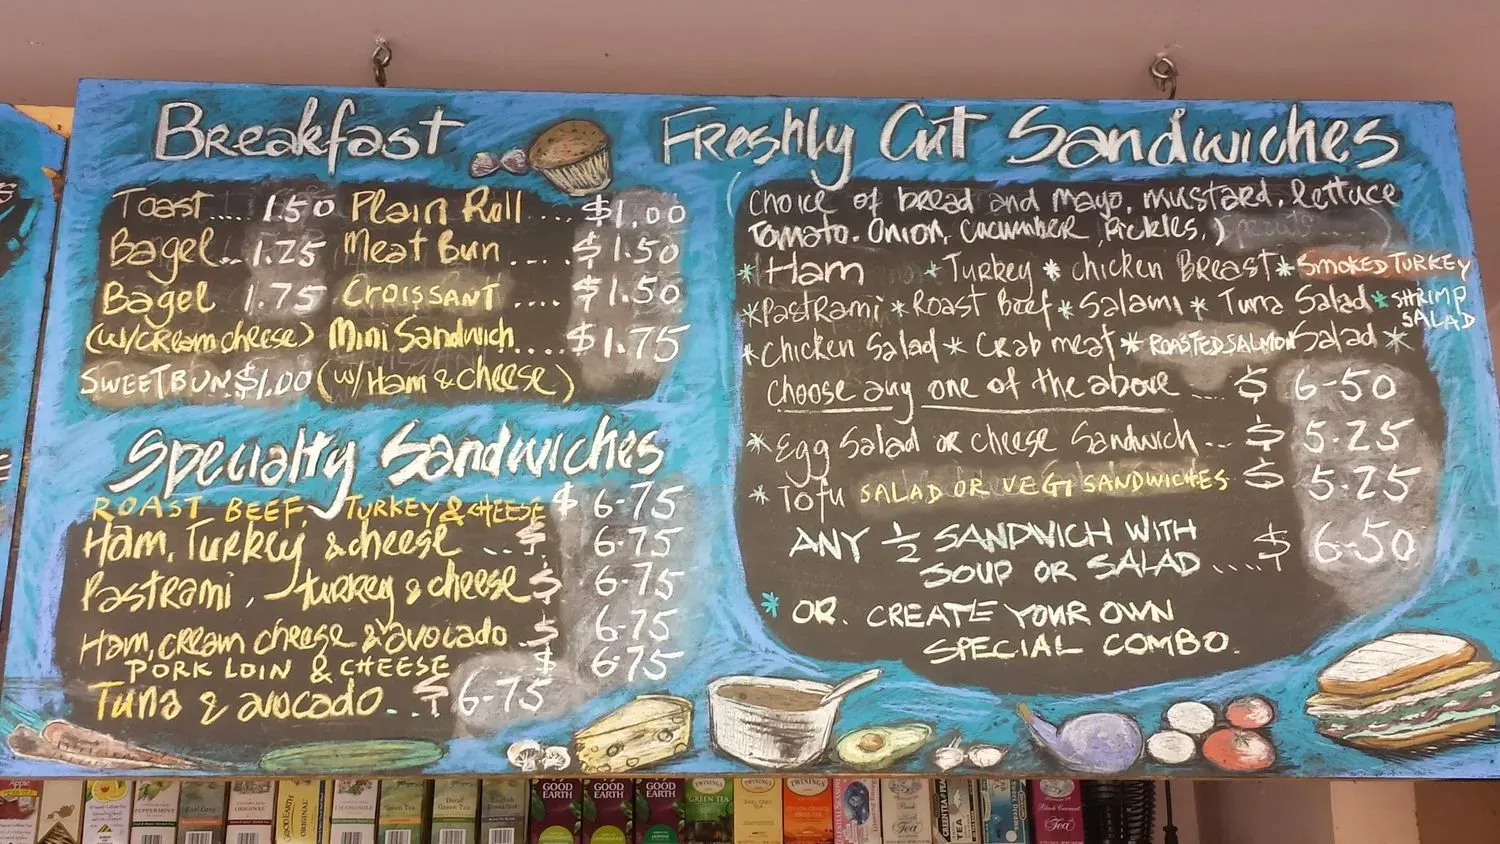 Breakfast
Toast.... 1.50 Plain Roll .... $1.00
Bagel.. 1.25 Meat Bun .... $1.50
Bagel 1.75 Croissant .... $1.50
(w/cream cheese) Mini Sandwich .... $1.75
SWEET BUN $1.00 (w/Ham & cheese)
Specialty Sandwiches
ROAST BEEF, TURKEY & CHEESE $ 6-75
Ham, Turkey & cheese ... $ 6-75
Pastrami, turkey & cheese $ 6-75
Ham, cream cheese & avocado $ 6-75
PORK LOIN & CHEESE $ 6-75
Tuna & avocado.. $ 6-75
Freshly Cut Sandwiches
(Choice of bread and mayo, mustard, lettuce
Tomato. Onion, Cucumber, Pickles,)
* Ham * Turkey * chicken Breast * SMOKED TURKEY
* Pastrami * Roast Beef * Salami * Tuna Salad * SHRIMP SALAD
* Chicken Salad * Crab meat * ROASTED SALMON Salad *
Choose any one of the above .... $ 6-50
* Egg Salad or cheese Sandwich ... $ 5-25
* Tofu SALAD OR VEGI SANDWICHES $ 5-25
ANY 1/2 SANDWICH WITH
SOUP OR SALAD .... $ 6-50
* OR. CREATE YOUR OWN
SPECIAL COMBO.
PEPPERMINT
Earl Grey
ORIGINAL
GOOD EARTH
ORIGINAL
CHAMOMILE
Green Tea
Decaf Green Tea
English Breakfast
GOOD EARTH
GOOD EARTH
LEMONGRASS
GOOD EARTH
JASMINE
TWININGS
GREEN TEA
TWININGS
EARL GREY
TWININGS
Tea
TEA
Black Currant
Tea